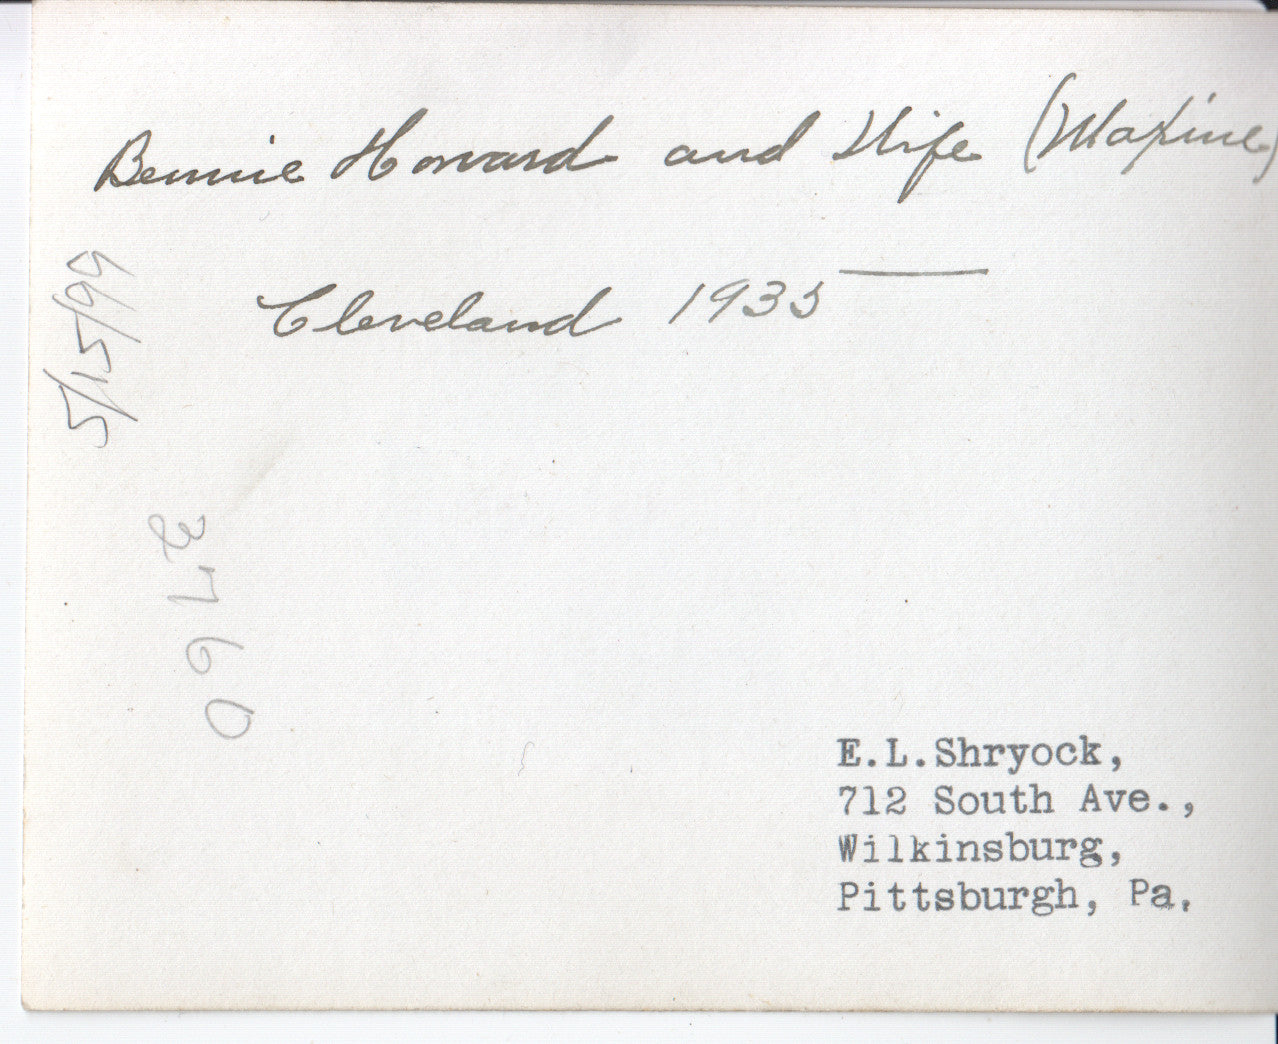 Bennie Howard and Wife (Maxine)
Cleveland 1935
5/15/99
E.L.Shryock,
712 South Ave.,
Wilkinsburg,
Pittsburgh, Pa.